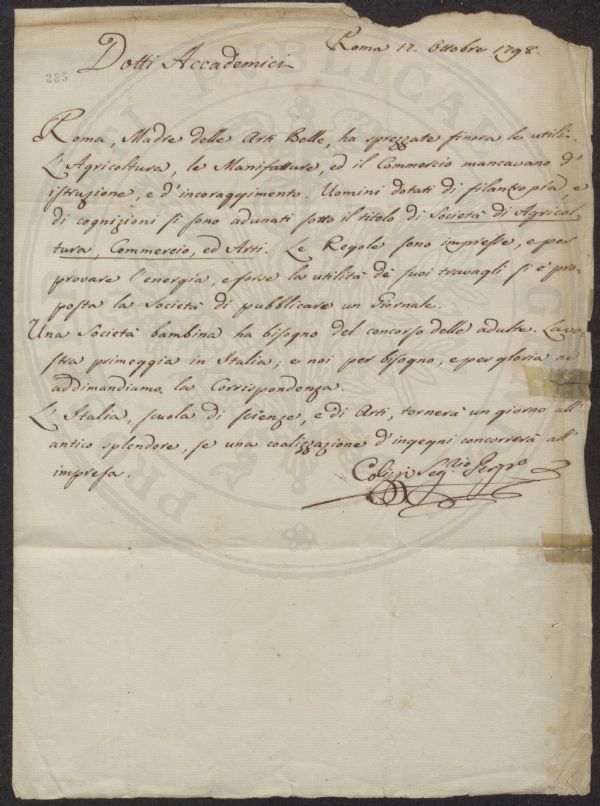 Roma 17. Ottobre 1798.
Dotti Accademici
285
Roma, Madre delle Arti Belle, ha sprezzate finora le utili.
L'Agricoltura, le Manifatture, ed il Commercio mancavano d'
istruzione, e d'incoraggimento. Uomini dotati di filantropia, e
di cognizioni si sono adunati sotto il titolo di Società di Agricol-
tura, Commercio, ed Arti. Le Regole sono impresse, e per
provare l'energia, e forse la utilità de suoi travagli si è pro-
posta la Società di pubblicare un Giornale.
Una Società bambina ha bisogno del concorso delle adulte. La vo-
stra primeggia in Italia; e noi per bisogno, e per gloria ne
addimandiamo la Corrispondenza.
L'Italia, scuola di scienze, e di Arti, tornerà un giorno all'
antico splendore, se una coalizzazione d'ingegni concorrerà all'
impresa.
Seg.rio Perp.o